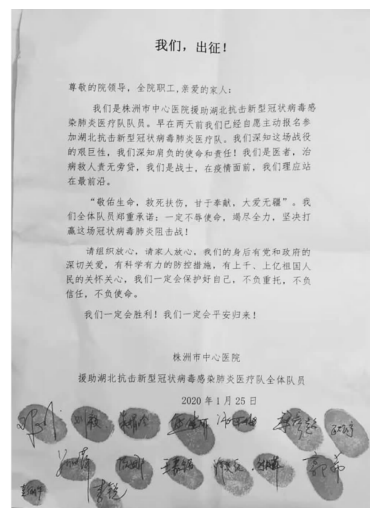 我们，出征！
尊敬的院领导，全院职工，亲爱的家人：
我们是株洲市中心医院援助湖北抗击新型冠状病毒感
染肺炎医疗队队员。早在两天前我们已经自愿主动报名参
加湖北抗击新型冠状病毒肺炎医疗队。我们深知这场战役
的艰巨性，我们深知肩负的使命和责任！我们是医者，治
病救人责无旁贷，我们是战士，在疫情面前，我们理应站
在最前沿。
“敬佑生命，救死扶伤，甘于奉献，大爱无疆”。我
们全体队员郑重承诺：一定不辱使命，竭尽全力，坚决打
赢这场冠状病毒肺炎阻击战！
请组织放心，请家人放心，我们的身后有党和政府的
深切关爱，有科学有力的防控措施，有上千、上亿祖国人
民的关怀关心，我们一定会保护好自己，不负重托，不负
信任，不负使命。
我们一定会胜利！我们一定会平安归来！
株洲市中心医院
援助湖北抗击新型冠状病毒感染肺炎医疗队全体队员
2020年1月25日